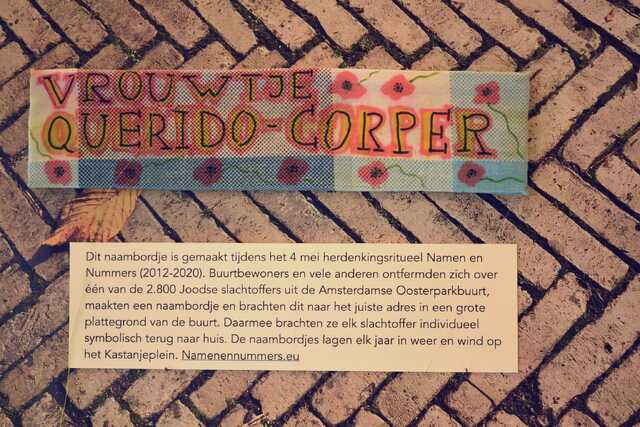 VROUWTJE
QUERIDO-CORPER
Dit naambordje is gemaakt tijdens het 4 mei herdenkingsritueel Namen en
Nummers (2012-2020). Buurtbewoners en vele anderen ontfermden zich over
één van de 2.800 Joodse slachtoffers uit de Amsterdamse Oosterparkbuurt,
maakten een naambordje en brachten dit naar het juiste adres in een grote
plattegrond van de buurt. Daarmee brachten ze elk slachtoffer individueel
symbolisch terug naar huis. De naambordjes lagen elk jaar in weer en wind op
het Kastanjeplein. Namenennummers.eu